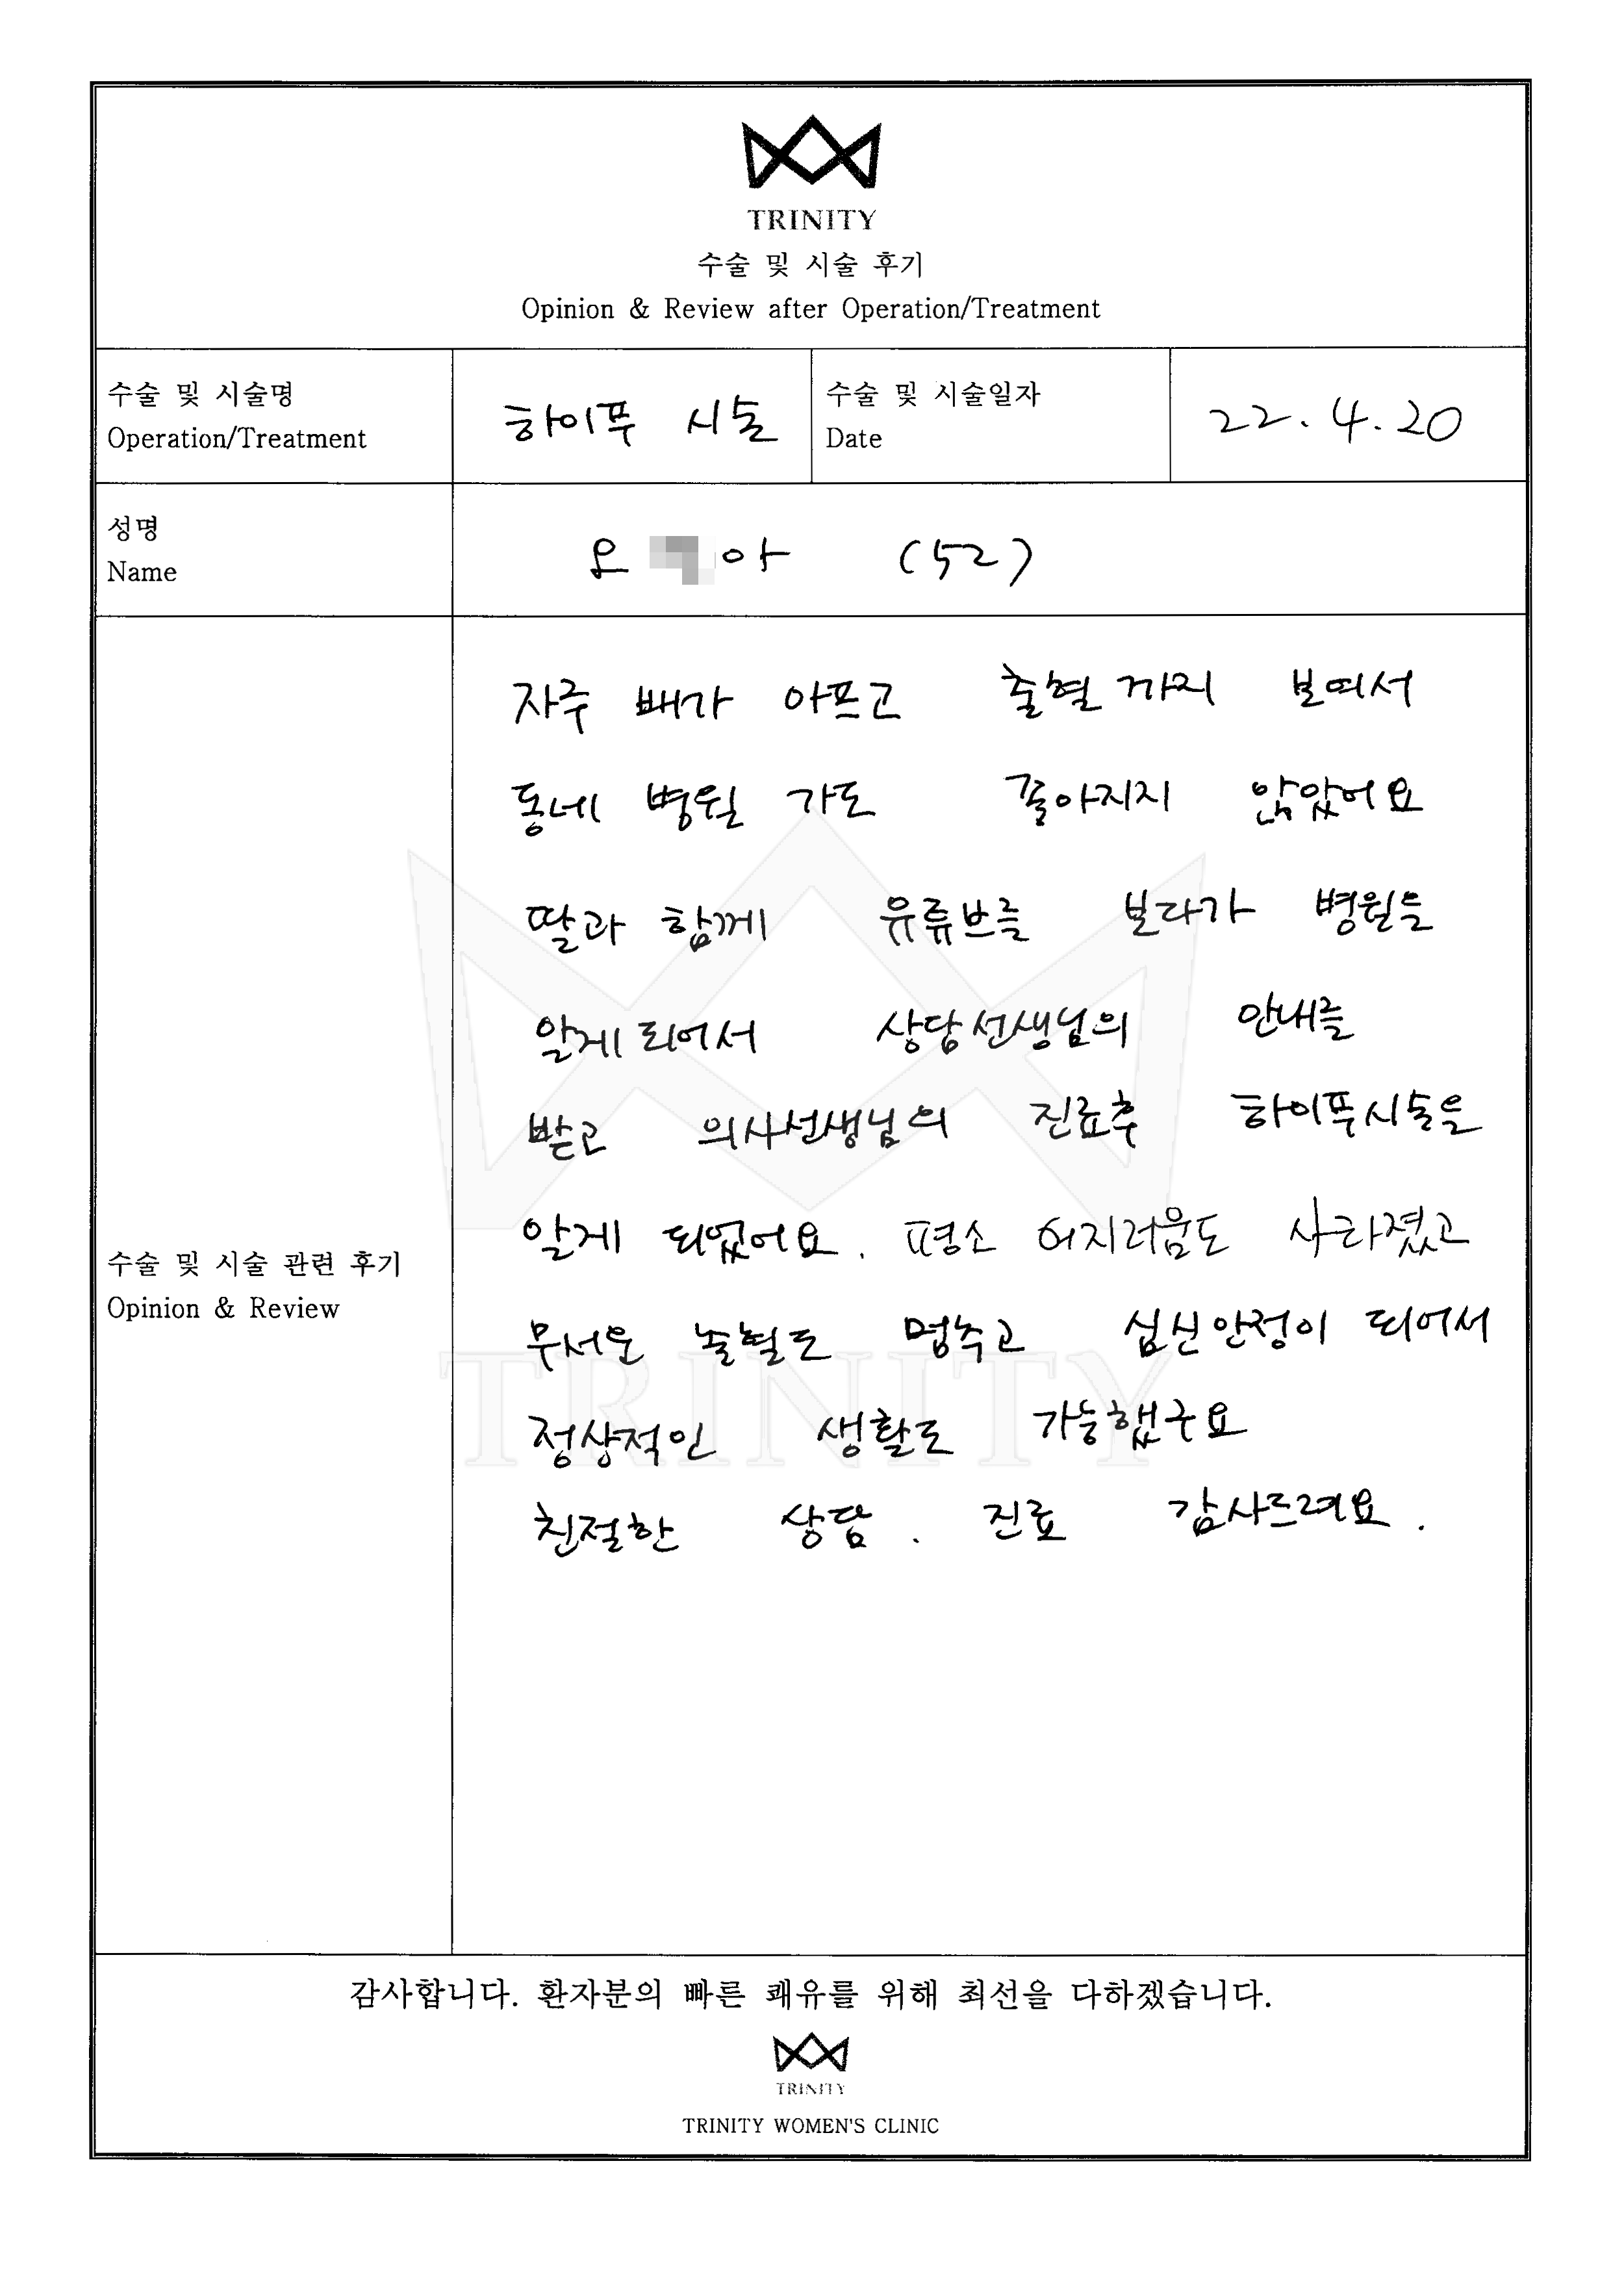 TRINITY
수술 및 시술 후기
Opinion & Review after Operation/Treatment
수술 및 시술명
Operation/Treatment
하이푸 시술
수술 및 시술일자
Date
22.4.20
성명
Name
오 아 (52)
수술 및 시술 관련 후기
Opinion & Review
자주 배가 아프고 출혈까지 보여서
동네 병원 가도 좋아지지 않았어요
딸과 함께 유류브를 보다가 병원을
알게되어서 상담선생님의 안내를
받고 의사선생님의 진료후 하이푸시술을
알게 되었어요. 평소 어지러움도 사라졌고
무서운 출혈도 멈추고 심신안정이 되어서
정상적인 생활도 가능했구요
친절한 상담. 진료 감사드려요.
TRINITY
감사합니다. 환자분의 빠른 쾌유를 위해 최선을 다하겠습니다.
TRINITY
TRINITY WOMEN'S CLINIC